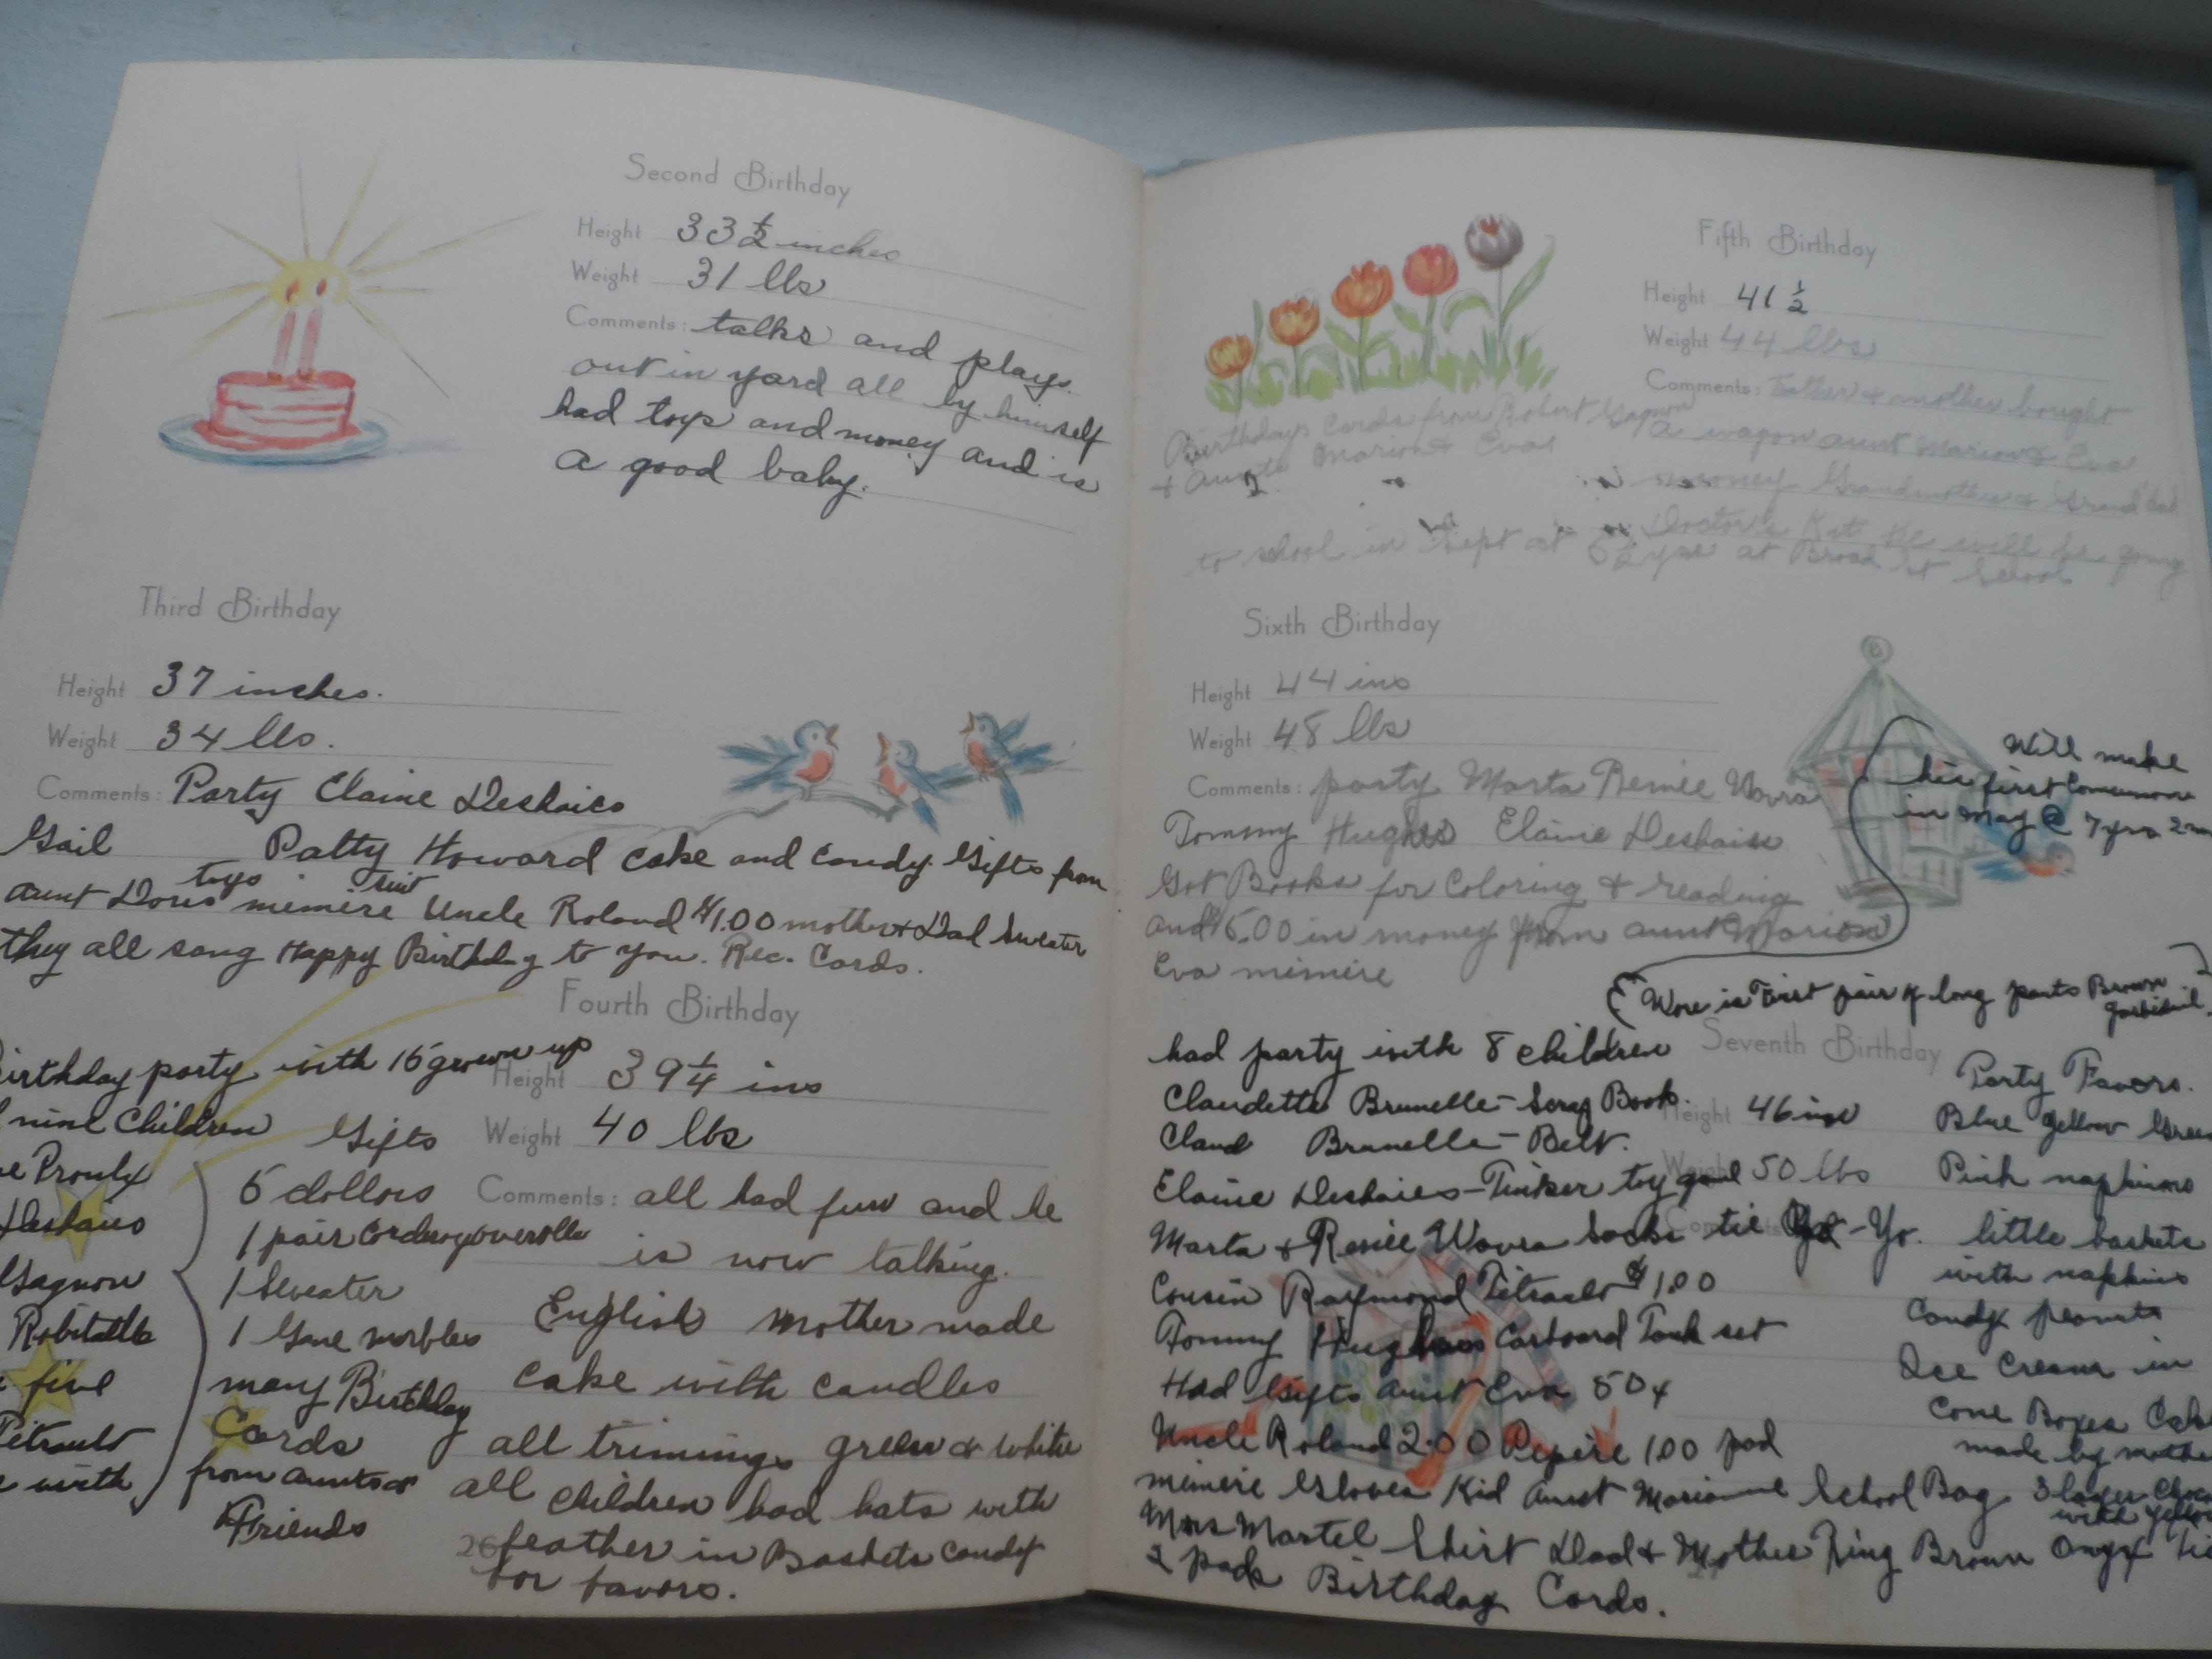 Second Birthday
Height 33 1/2 inches
Weight 31 lbs
Comments: talks and plays
out in yard all by himself
had toys and money and is
a good baby.
Third Birthday
Height 37 inches.
Weight 34 lbs.
Comments: Party Elaine Deshaies
Gail Patty Howard cake and candy. Gifts from
toys suit
aunt Doris mimere Uncle Roland $1.00 mother & Dad Sweater
they all sang Happy Birthday to you. Rec. Cards.
Fourth Birthday
irthday party with 15 grown up
nine Children
Height 39 1/4 ins
Weight 40 lbs
Comments: all had fun and he
is now talking.
English mother made
cake with candles
all trimings green & white
all children had hats with
feather in Baskets candy
for favors.
Gifts
5 dollars
1 pair Corderoy overalls
1 Sweater
1 Game marbles
many Birthday
Cards
from aunts &
Friends
e Proulx
Deshaies
Gagnon
Robitaille
five
Tetrault
with
26
Fifth Birthday
Height 41 1/2
Weight 44 lbs
Comments: Father & mother bought
a wagon aunt Marion & Eva
money Grandmother & Grand dad
Doctor's Kit He will be going
to school in Sept at 5 1/2 yrs at Broad St School
Birthday Cards from Robert Gagnon
+ Aunts Marion & Eva
Sixth Birthday
Height 44 ins
Weight 48 lbs
Comments: party Marta Renée Wovra
Tommy Hughes Elaine Deshaies
Got Books for Coloring & reading
and $5.00 in money from aunt Marion
Eva mimere
Will make
his first Communion
in May @ 7 yrs 2 m
Wore is First pair of long pants Brown
Seventh Birthday
Height 46 ins
Weight 50 lbs
Comments
had party with 8 children
Claudette Brunelle - Scrap Book.
Claud Brunelle - Belt.
Elaine Deshaies - Tinker toy
Marta & Renée Wovra Socks tie Yo-Yo.
Cousin Raymond Tetrault $1.00
Tommy Hughes Carboard Tank set
Had Gifts Aunt Eva 50¢
Uncle Roland 2.00 Pepere 1.00 pad
mimere Gloves Kid Aunt Marianne School Bag
Mrs Martel Shirt Dad & Mother Ring Brown Onyx
2 pads Birthday Cards.
Party Favors.
Blue yellow Green
Pink napkins
little baskets
with napkins
Candy peanuts
Ice Cream in
Cone Boxes Cake
made by mother
3 layer
with yellow